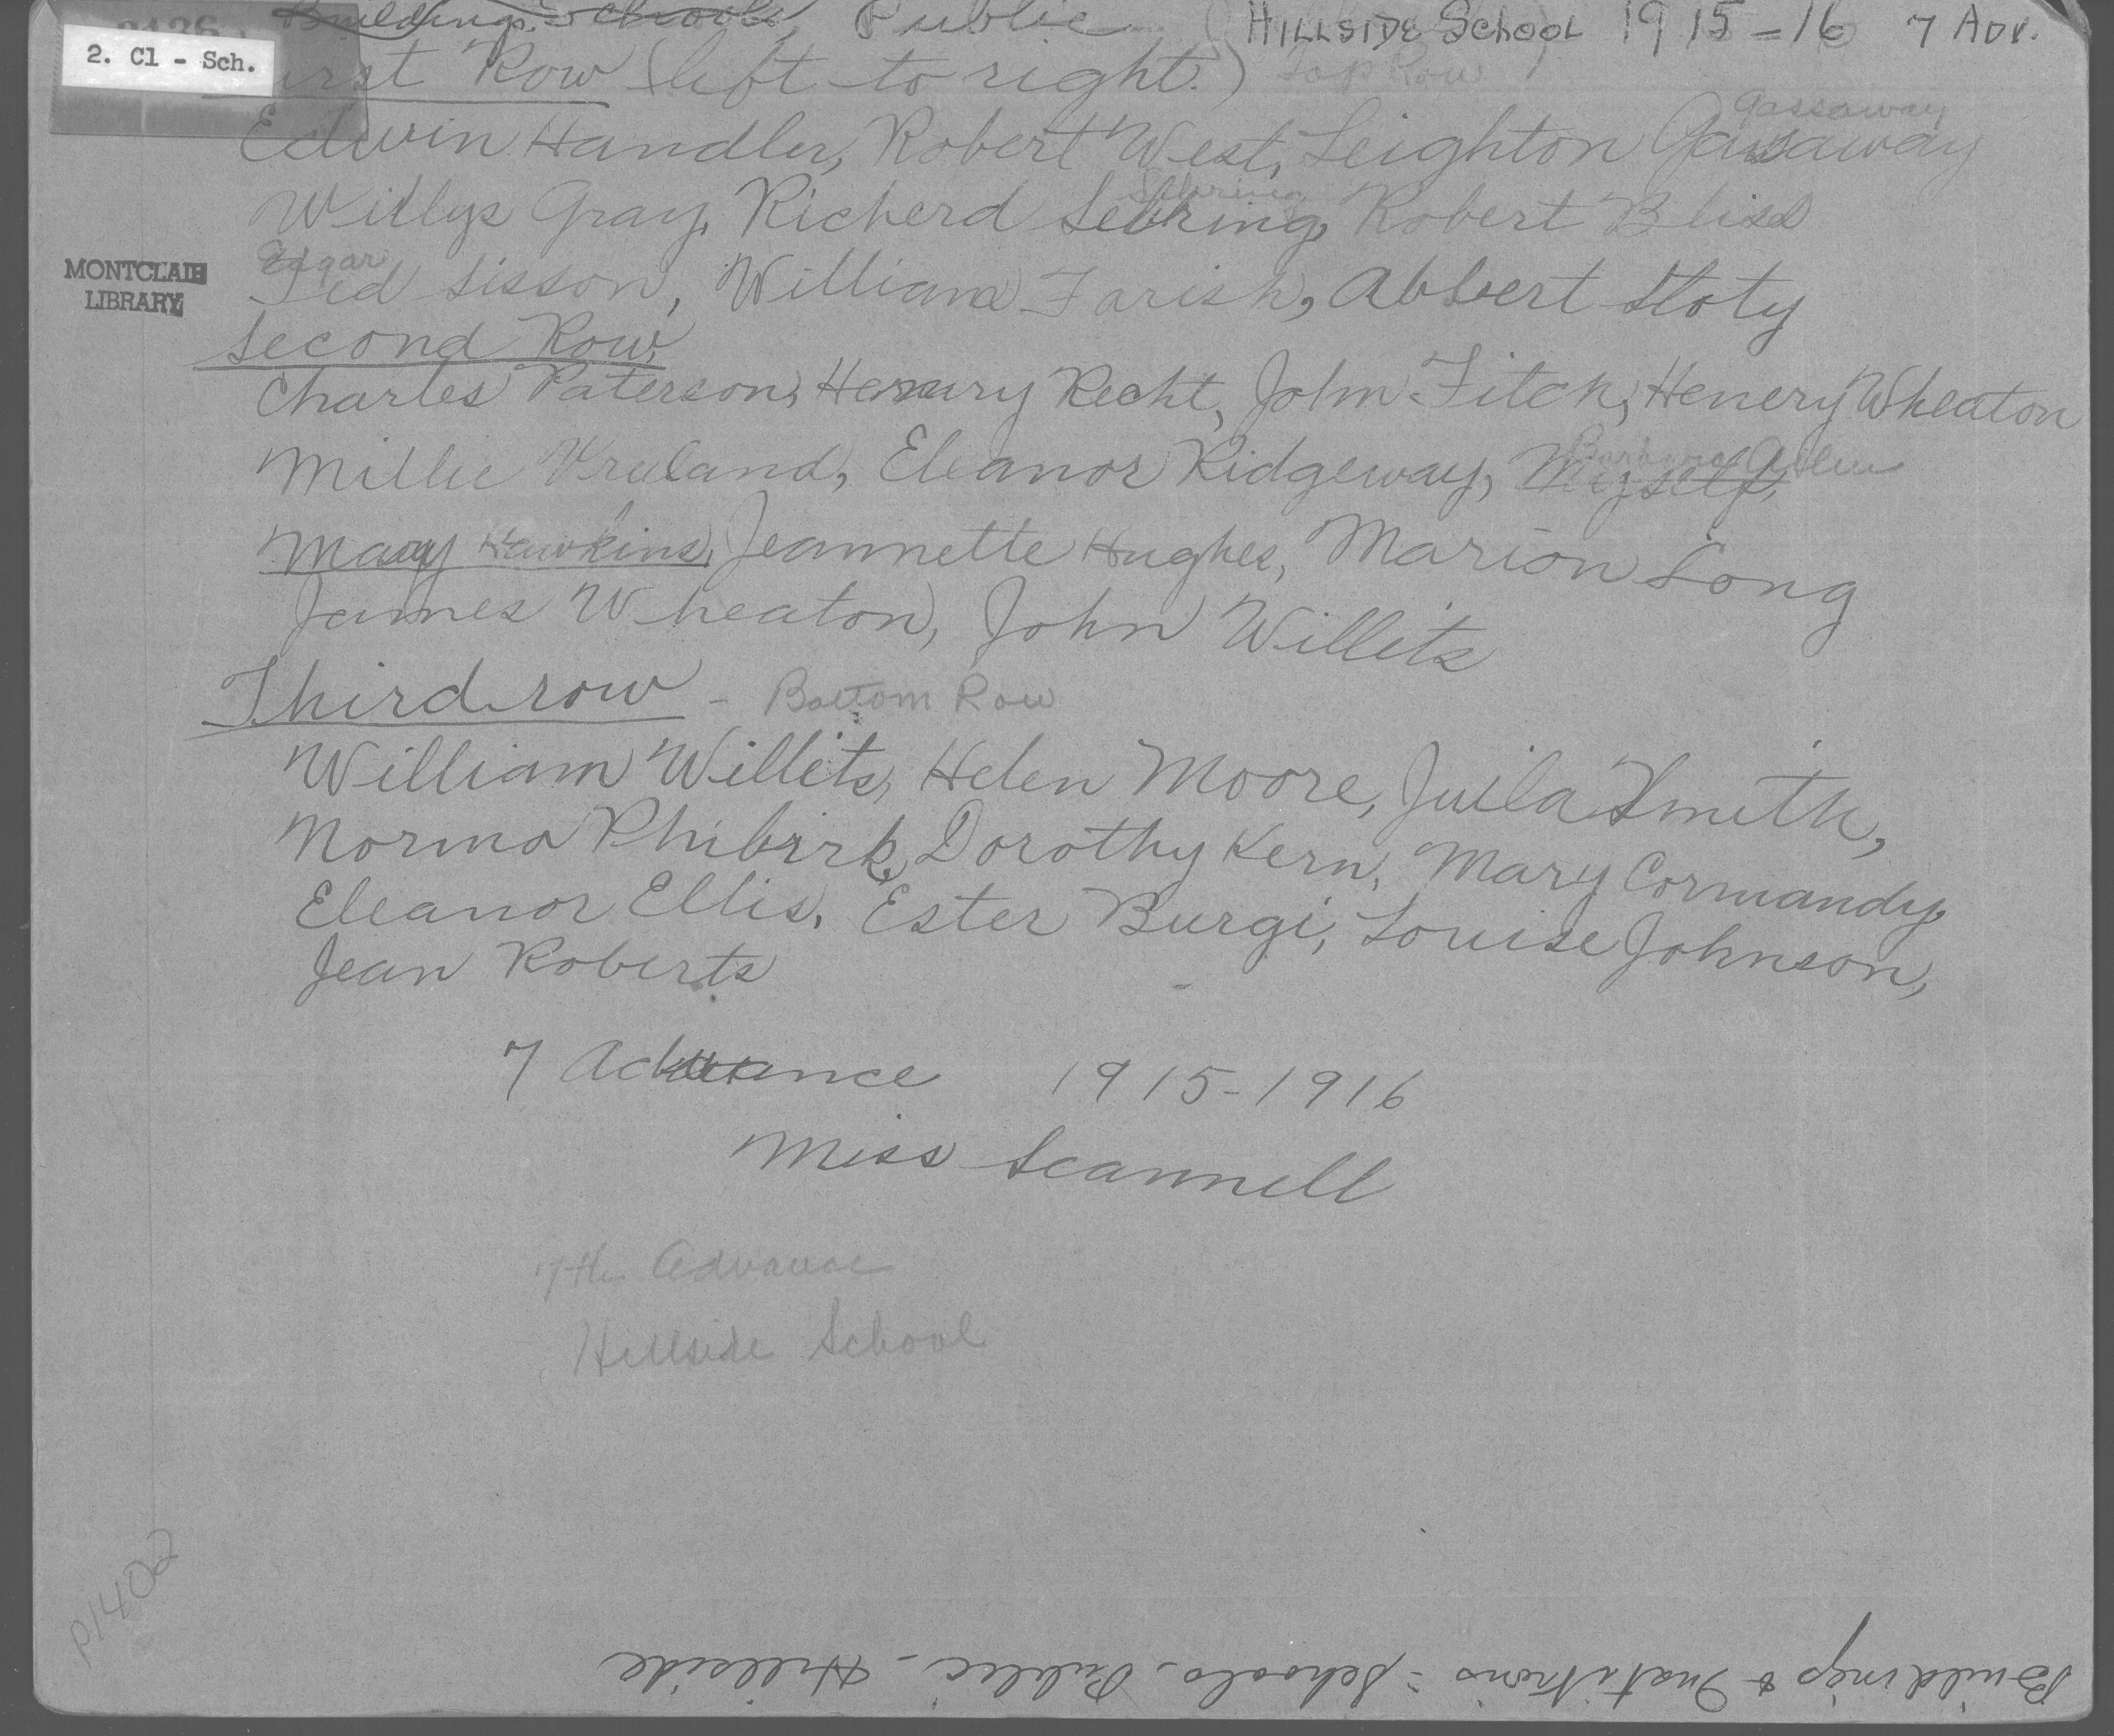 Buildings - Schools, Public (HILLSIDE School 1915-16 7 Adv.
2. Cl - Sch.
First Row (left to right.) Top Row
Gassaway
Edwin Handler, Robert West, Leighton Gassaway
Sebring
Willys Gray, Richerd Sebring, Robert Bliss
Edgar
Ted Sisson, William Farish, Abbert Hoty
MONTCLAIR
LIBRARY
Second Row
Charles Paterson, Henury Recht, John Fitch, Henery Wheaton
Barbara
Millie Vreeland, Eleanor Ridgeway, Myself,
Mary Hawkins, Jeannette Hughes, Marion Long
James Wheaton, John Willits
Third row - Bottom Row
William Willits, Helen Moore, Juila Smith,
Norma Phibirk, Dorothy Kern, Mary Cormandy,
Eleanor Ellis, Ester Burgi, Louise Johnson,
Jean Roberts
7 Advance 1915-1916
Miss Scannell
7th Advance
Hillside School
P1402
Buildings & Institutions - Schools, Public - Hillside